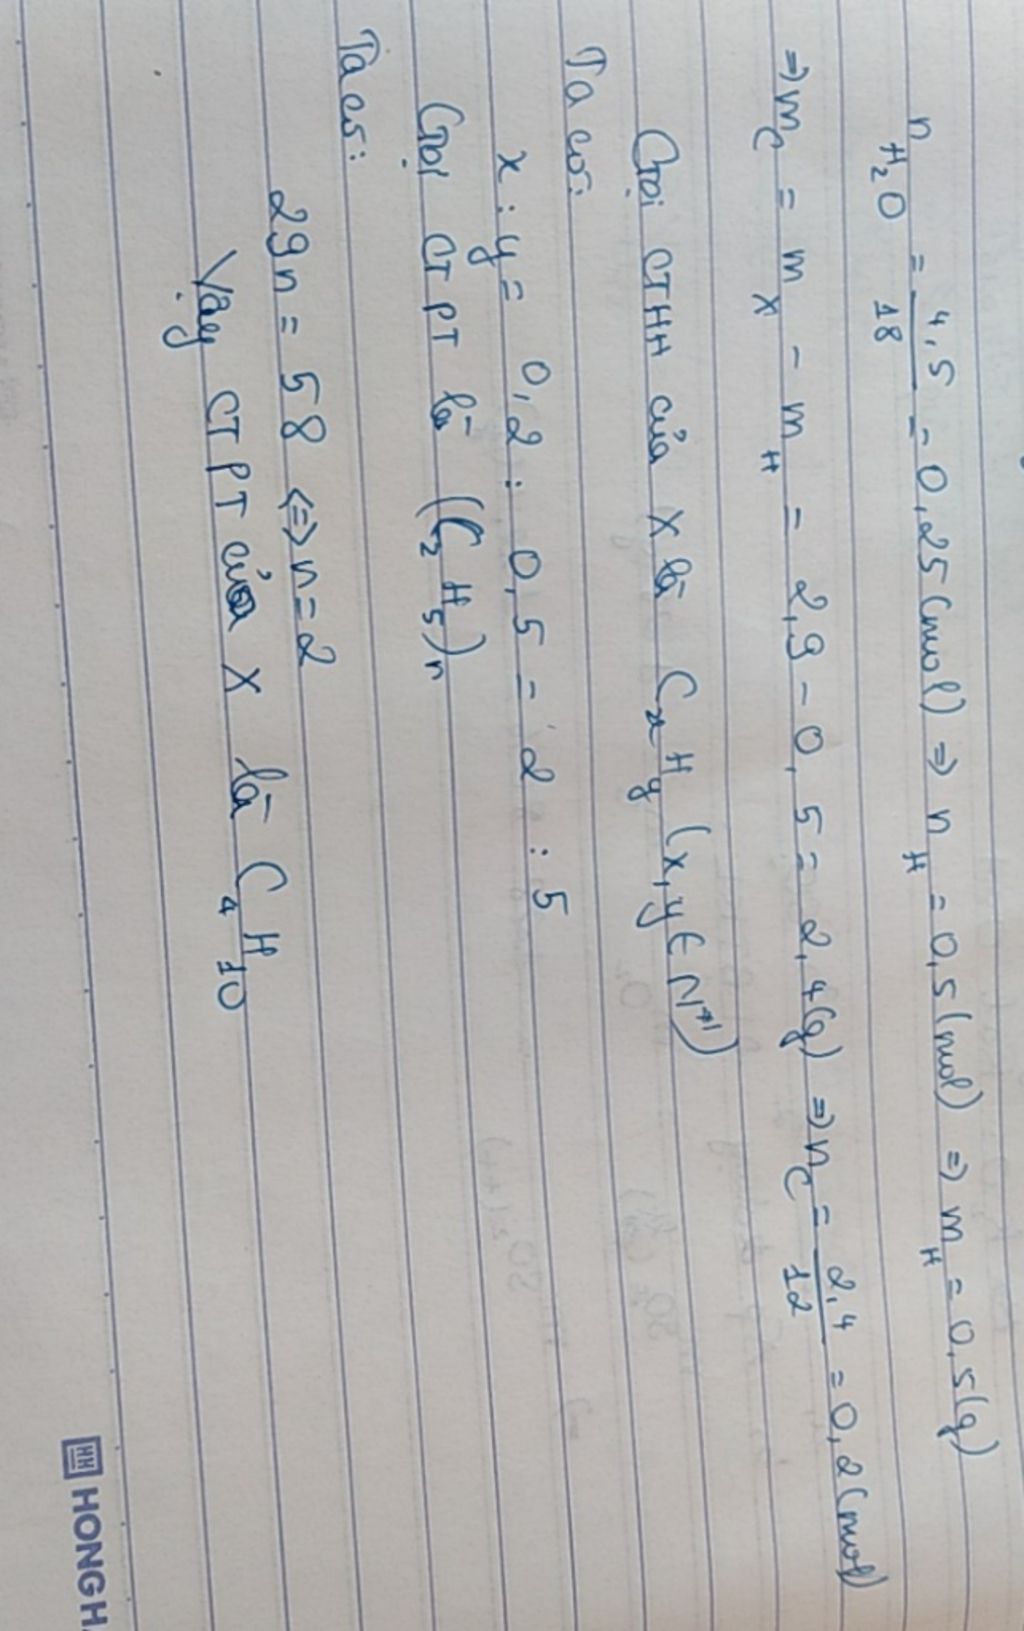 n H₂O = 4,5/18 = 0,25 (mol) ⇒ n H = 0,5 (mol) ⇒ m H = 0,5 (g)
⇒ m C = m X - m H = 2,9 - 0,5 = 2,4 (g) ⇒ n C = 2,4/12 = 0,2 (mol)
Gọi CTHH của X là CxHy (x, y ∈ N*)
Ta có:
x : y = 0,2 : 0,5 = 2 : 5
Gọi CTPT là (C₂H₅)n
Ta có:
29n = 58 ⇔ n = 2
Vậy CTPT của X là C₄H₁₀
HONG H